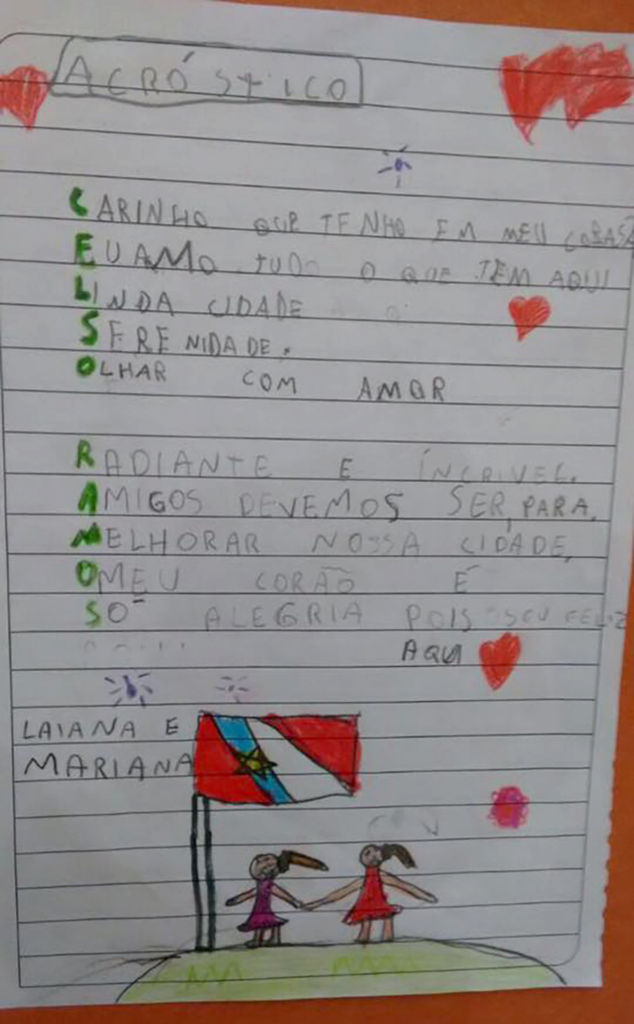 ACRÓSTICO
CARINHO QUE TENHO EM MEU CORASÃ
EU AMO TUDO O QUE TEM AQUI
LINDA CIDADE
SERENIDADE.
OLHAR COM AMOR
RADIANTE E ÍNCRIVEL.
AMIGOS DEVEMOS SER, PARA,
MELHORAR NOSSA CIDADE,
OMEU CORÃO É
SÓ ALEGRIA POIS SOU FELIZ
AQUI
LAIANA E
MARIANA